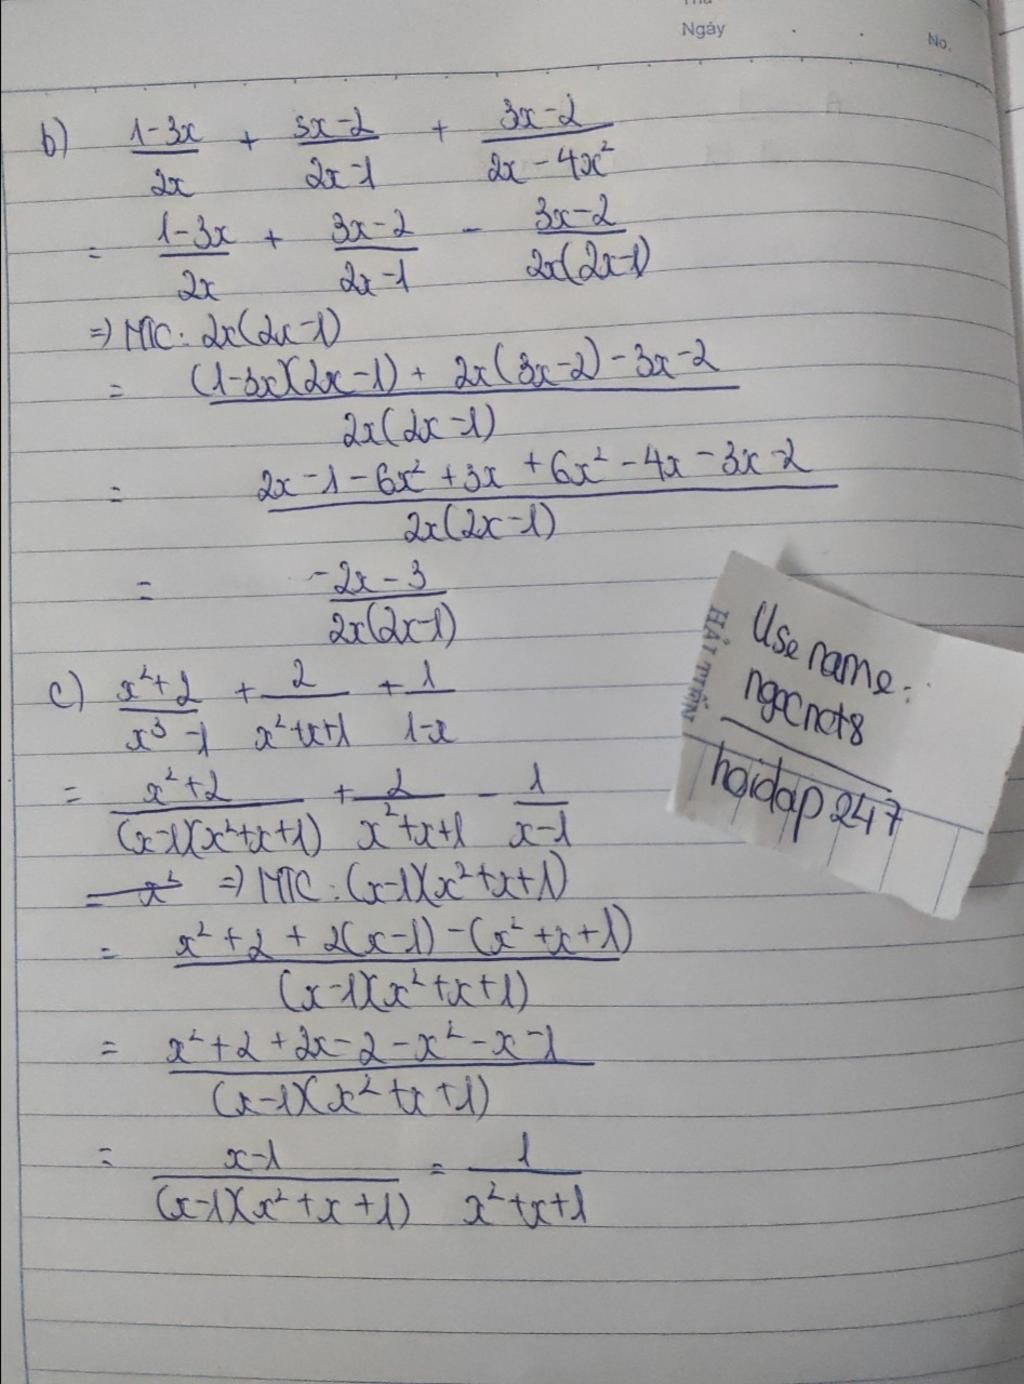 Thứ
Ngày
No.
b) (1-3x)/(2x) + (3x-2)/(2x-1) + (3x-2)/(2x-4x²)
= (1-3x)/(2x) + (3x-2)/(2x-1) - (3x-2)/(2x(2x-1))
=> MTC: 2x(2x-1)
= ((1-3x)(2x-1) + 2x(3x-2) - 3x-2)/(2x(2x-1))
= (2x-1-6x²+3x+6x²-4x-3x-2)/(2x(2x-1))
= (-2x-3)/(2x(2x-1))
c) (x²+2)/(x³-1) + 2/(x²+x+1) + 1/(1-x)
= (x²+2)/((x-1)(x²+x+1)) + 2/(x²+x+1) - 1/(x-1)
= x² => MTC: (x-1)(x²+x+1)
= (x²+2+2(x-1)-(x²+x+1))/((x-1)(x²+x+1))
= (x²+2+2x-2-x²-x-1)/((x-1)(x²+x+1))
= (x-1)/((x-1)(x²+x+1)) = 1/(x²+x+1)
HẢI TIẾN
Use name:
ngocnct8
hoidap247